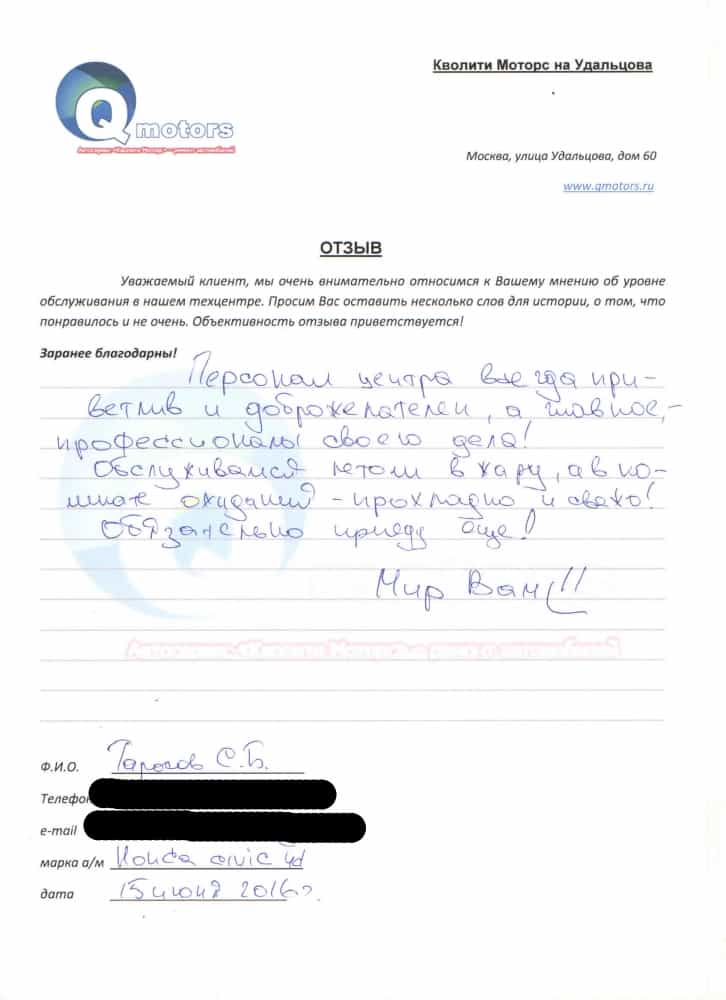 Кволити Моторс на Удальцова
Q motors
Автосервис «Кволити Моторс» – ремонт автомобилей
Москва, улица Удальцова, дом 60
www.qmotors.ru
ОТЗЫВ
Уважаемый клиент, мы очень внимательно относимся к Вашему мнению об уровне
обслуживания в нашем техцентре. Просим Вас оставить несколько слов для истории, о том, что
понравилось и не очень. Объективность отзыва приветствуется!
Заранее благодарны!
Персонал центра всегда при-
ветлив и доброжелателен, а главное, -
профессионалы своего дела!
Обслуживался летом в жару, а в ко-
мнате ожидания - прохладно и свежо!
Обязательно приеду еще!
Мир Вам!!
Ф.И.О. С.Б.
Телефон
e-mail
марка а/м Honda civic 4d
дата 15 июня 2016г.